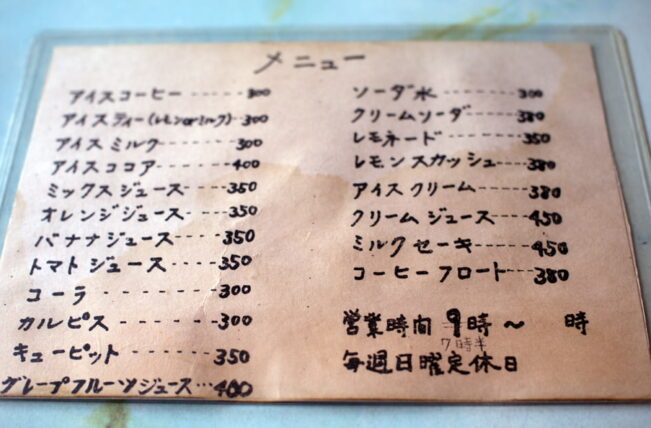 メニュー
アイスコーヒー ----- 300
アイスティー(レモンorミルク)--300
アイスミルク ------ 300
アイスココア ------ 400
ミックスジュース---- 350
オレンジジュース---- 350
バナナジュース----- 350
トマトジュース----- 350
コーラ --------- 300
カルピス ------- 300
キューピット ------ 350
グレープフルーツジュース…400
ソーダ水 ------- 300
クリームソーダ ---- 380
レモネード ------ 350
レモンスカッシュ---380
アイスクリーム---- 380
クリームジュース----450
ミルクセーキ ---- 450
コーヒーフロート---380
営業時間 9時〜 時
7時半
毎週日曜定休日